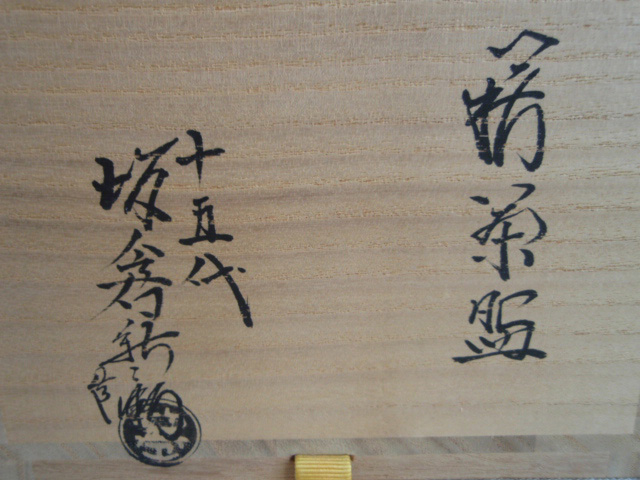 萩茶盌
十五代
坂倉新兵衛